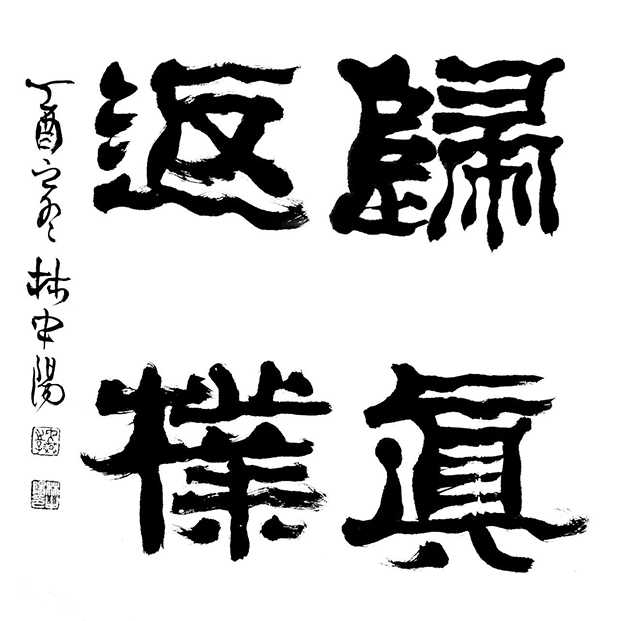 歸眞
返樸
丁酉之冬林中陽